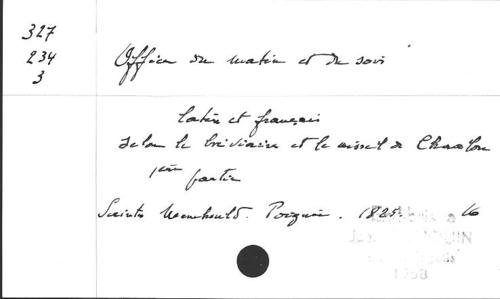 327
234
3
Office du matin et du soir
latin et français
selon le bréviaire et le missel de Chaalon
1ère partie
Sainte Menehould. Poignée. 1825. 16